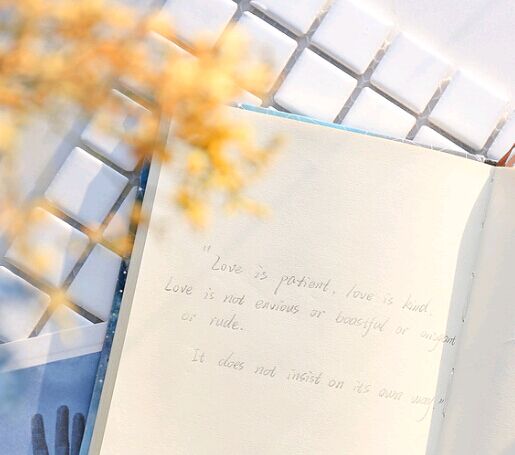 "Love is patient, love is kind.
Love is not envious or boastful or arrogant
or rude.
It does not insist on its own way."